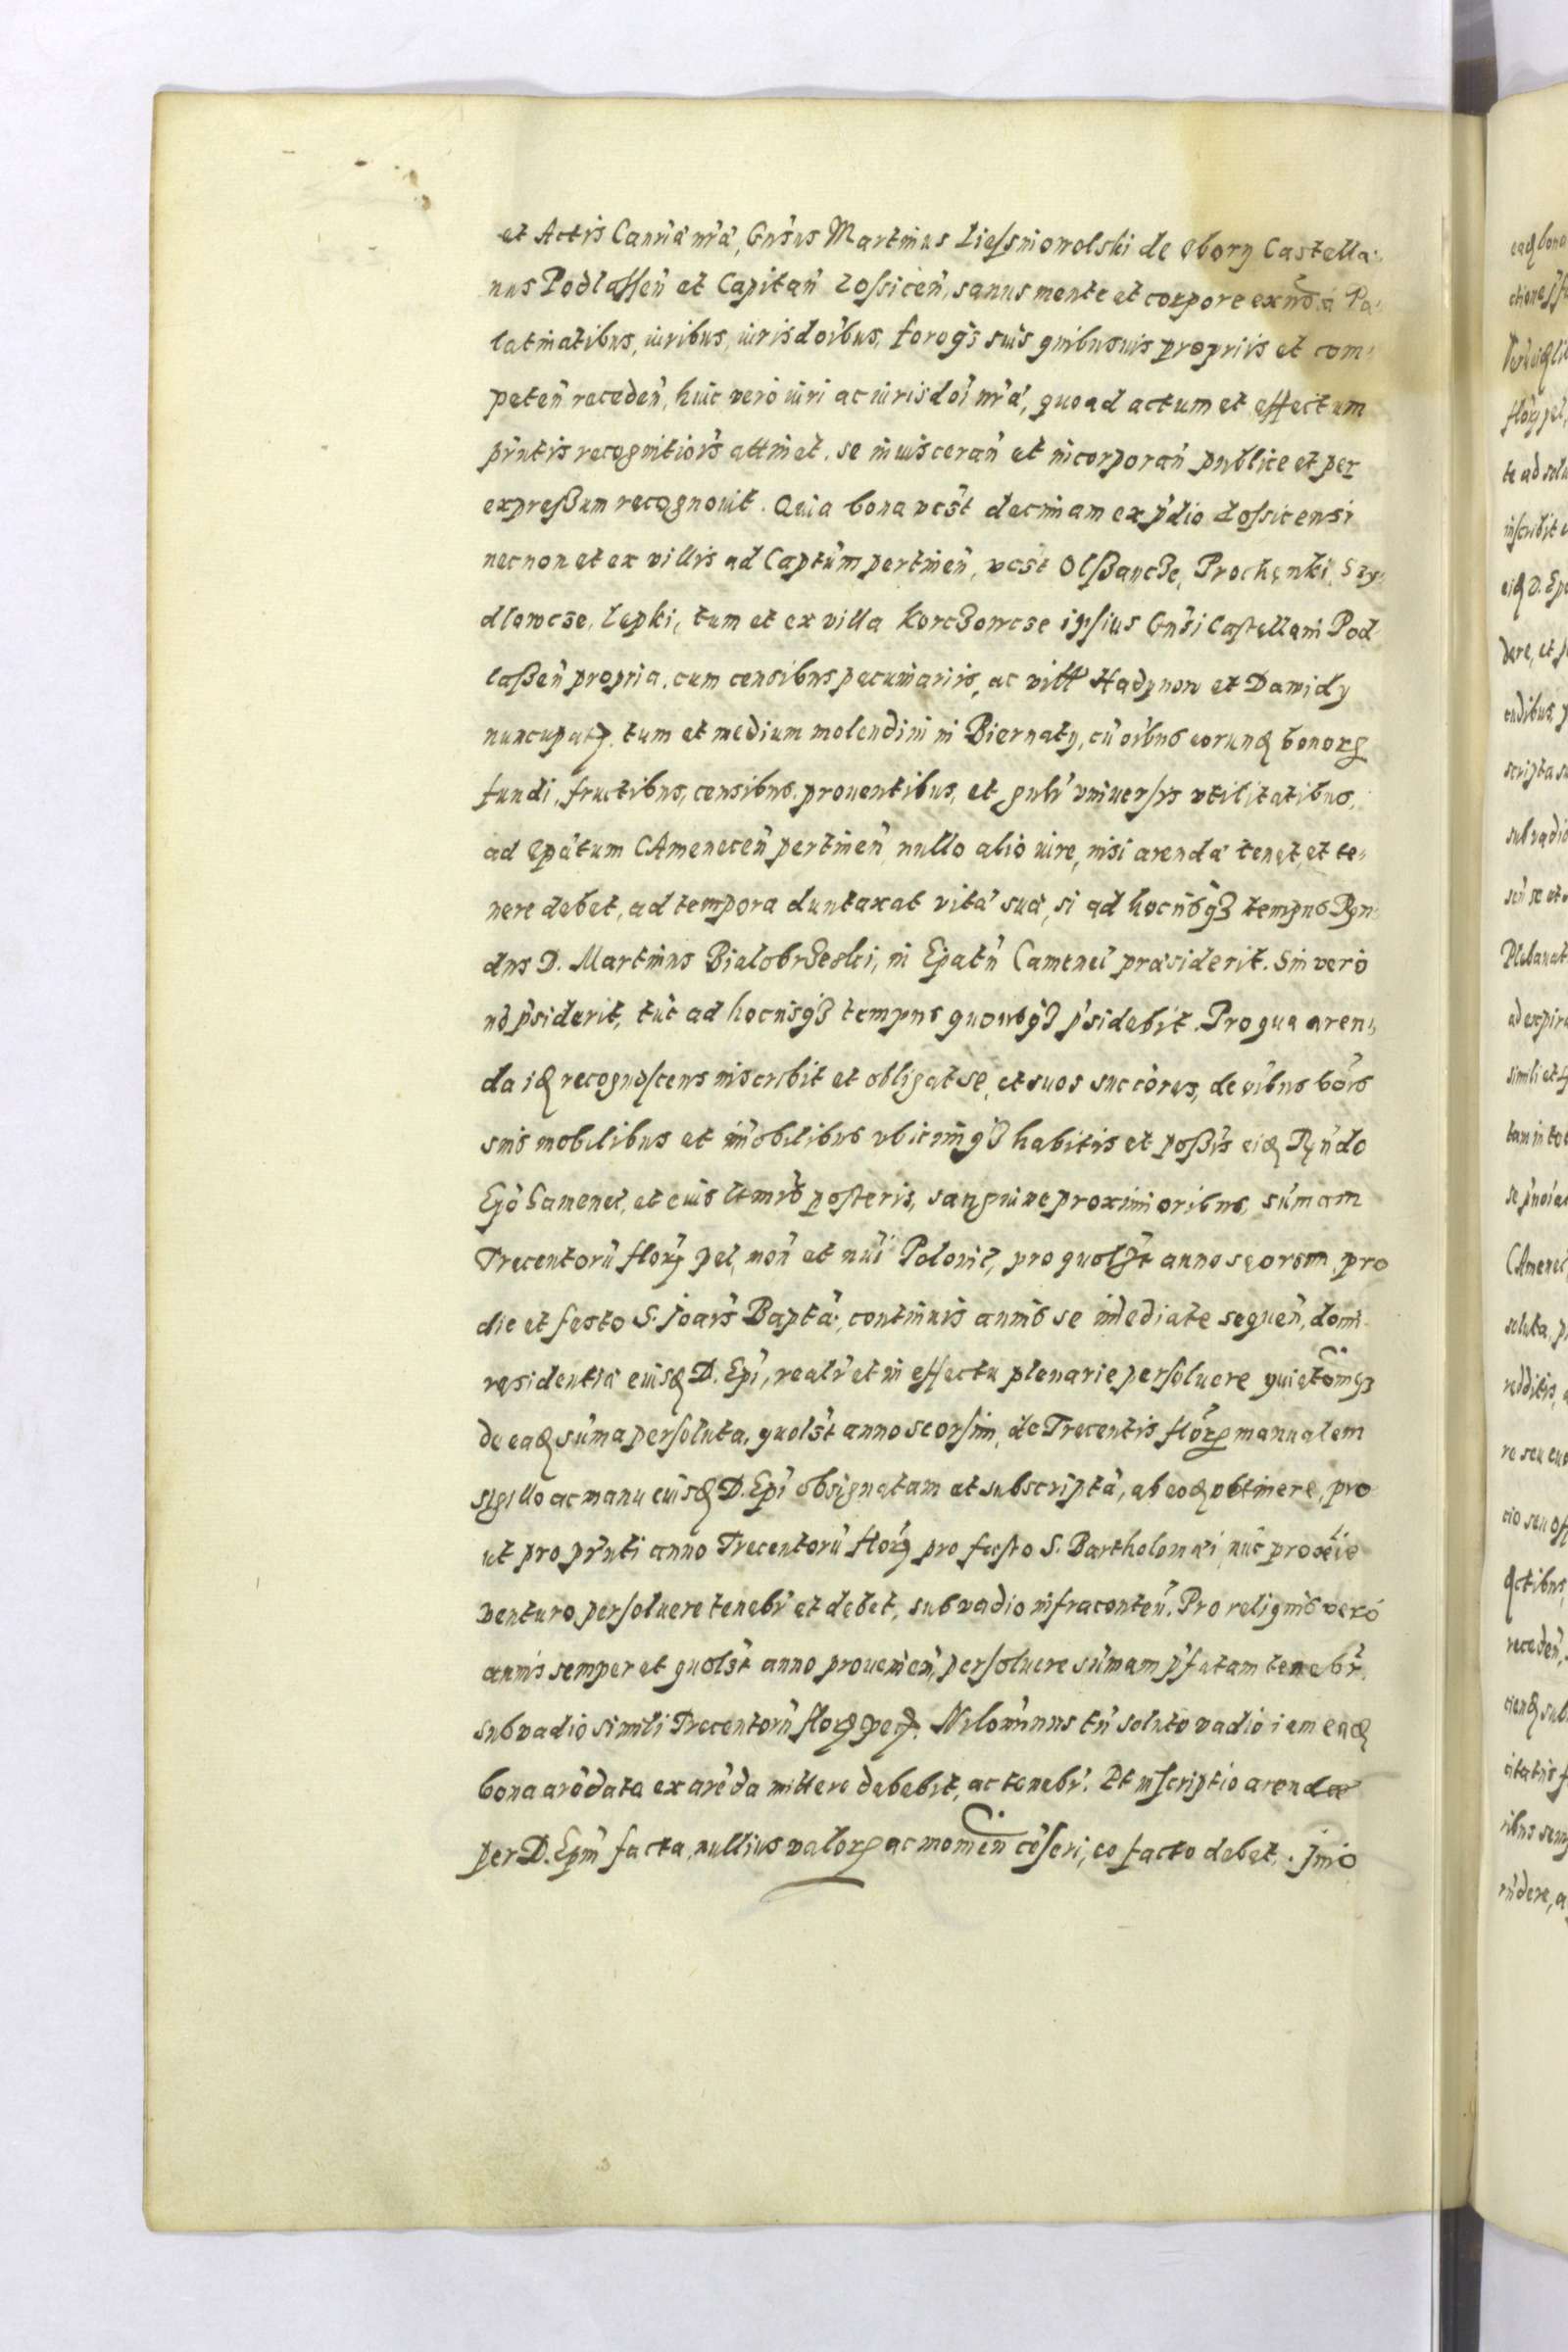 et Actis Canriæ nr̃æ, Gñsus Martinus Lieſsniowolski de Obory Castella-
nus Podlaſsen̄ et Capitan̄ Loſsicen̄, sanus mente et corpore exñs à Pa-
latinatibus, iuribus, iurisdoĩbus, foroqs suis quibusuis propriis et com-
peten̄ receden̄, huic vero iuri ac iurisdoĩ nr̃æ, quoad actum et effectum
pñtis recognitiois attinet, se inuisceran̄ et incorporan̄ publice et per
expreßum recognouit. Quia bona vcȝt decimam ex pdio Loſsicensi
necnon et ex villis ad Captum pertinen̄, vcȝt Olſßancȝe, Prochenki, Szy-
dlowcze, Lepki, tum et ex villa Korcȝowcze ipſius Gñsi Caſtellani Pod-
laßen̄ propria, cum censibus pecuniariis, ac vill Hadynow et Dawidy
nuncupatȝ, tum et medium molendini in Biernaty, cũ oĩbus eorundȝ bonorȝ
fundi, fructibus, censibus, prouentibus, et gnlr̃ vniuerſis vtilitatibus,
ad Epãtum CAmenecen̄ pertinen̄ nullo alio iure, nisi arendæ tenet, et te-
nere debet, ad tempora duntaxat vitæ suæ, si ad hocusqȝ tempus Rñ-
dus D. Martinus Bialobrȝeski, in Epatũ Camenec̃ præsiderit. Sin vero
nõ psiderit, tũc ad hocusqȝ tempus quousqȝ psidebit. Pro qua aren-
da idȝ recognoſcens inscribit et obligat se, et suos succores, de oĩbus bõis
suis mobilibus et imobilibus vbicunqȝ habitis et poßis eidȝ Rñdo
Epõ Camenec̃, et eius ltimis poſteris, sanguine proximioribus, sũmam
Trecentorũ florȝ pel, mon̄ et nũi Polonic̃, pro quolȝt anno seorsim pro
die et festo S. Joañis Baptæ, continuis annis se imediate sequen̄, domi
residentiæ eiusdȝ D. Epi, realr̃ et in effectu plenarie perſoluere quietõmqȝ
de eadȝ sũma perſoluta, quolȝt anno seorſim, de Trecentis florȝ manualem
sigillo ac manu eiusdȝ D. Epi obsignatam et subscriptã, ab eodȝ obtinere, pro-
ut pro pñti anno Trecentorũ florȝ pro feſto S. Bartholomæi nũc proxie
venturo perſoluere tenebr̃ et debet, sub vadio infraconten̄. Pro reliquis vero
annis semper et quolȝt anno prouenien̄, perſoluere sũmam pfatam tenebr̃,
sub vadio simili Trecentorũ florȝ pecȝ. Nilominus tñ soluto vadio iam eadȝ
bona arẽdata ex arẽda mittere debebit, ac tenebr̃. Et inſcriptio arendæ
per D. Epm̃ facta, nullius valorȝ ac momen̄ cẽſeri, eo facto debet. Jmo